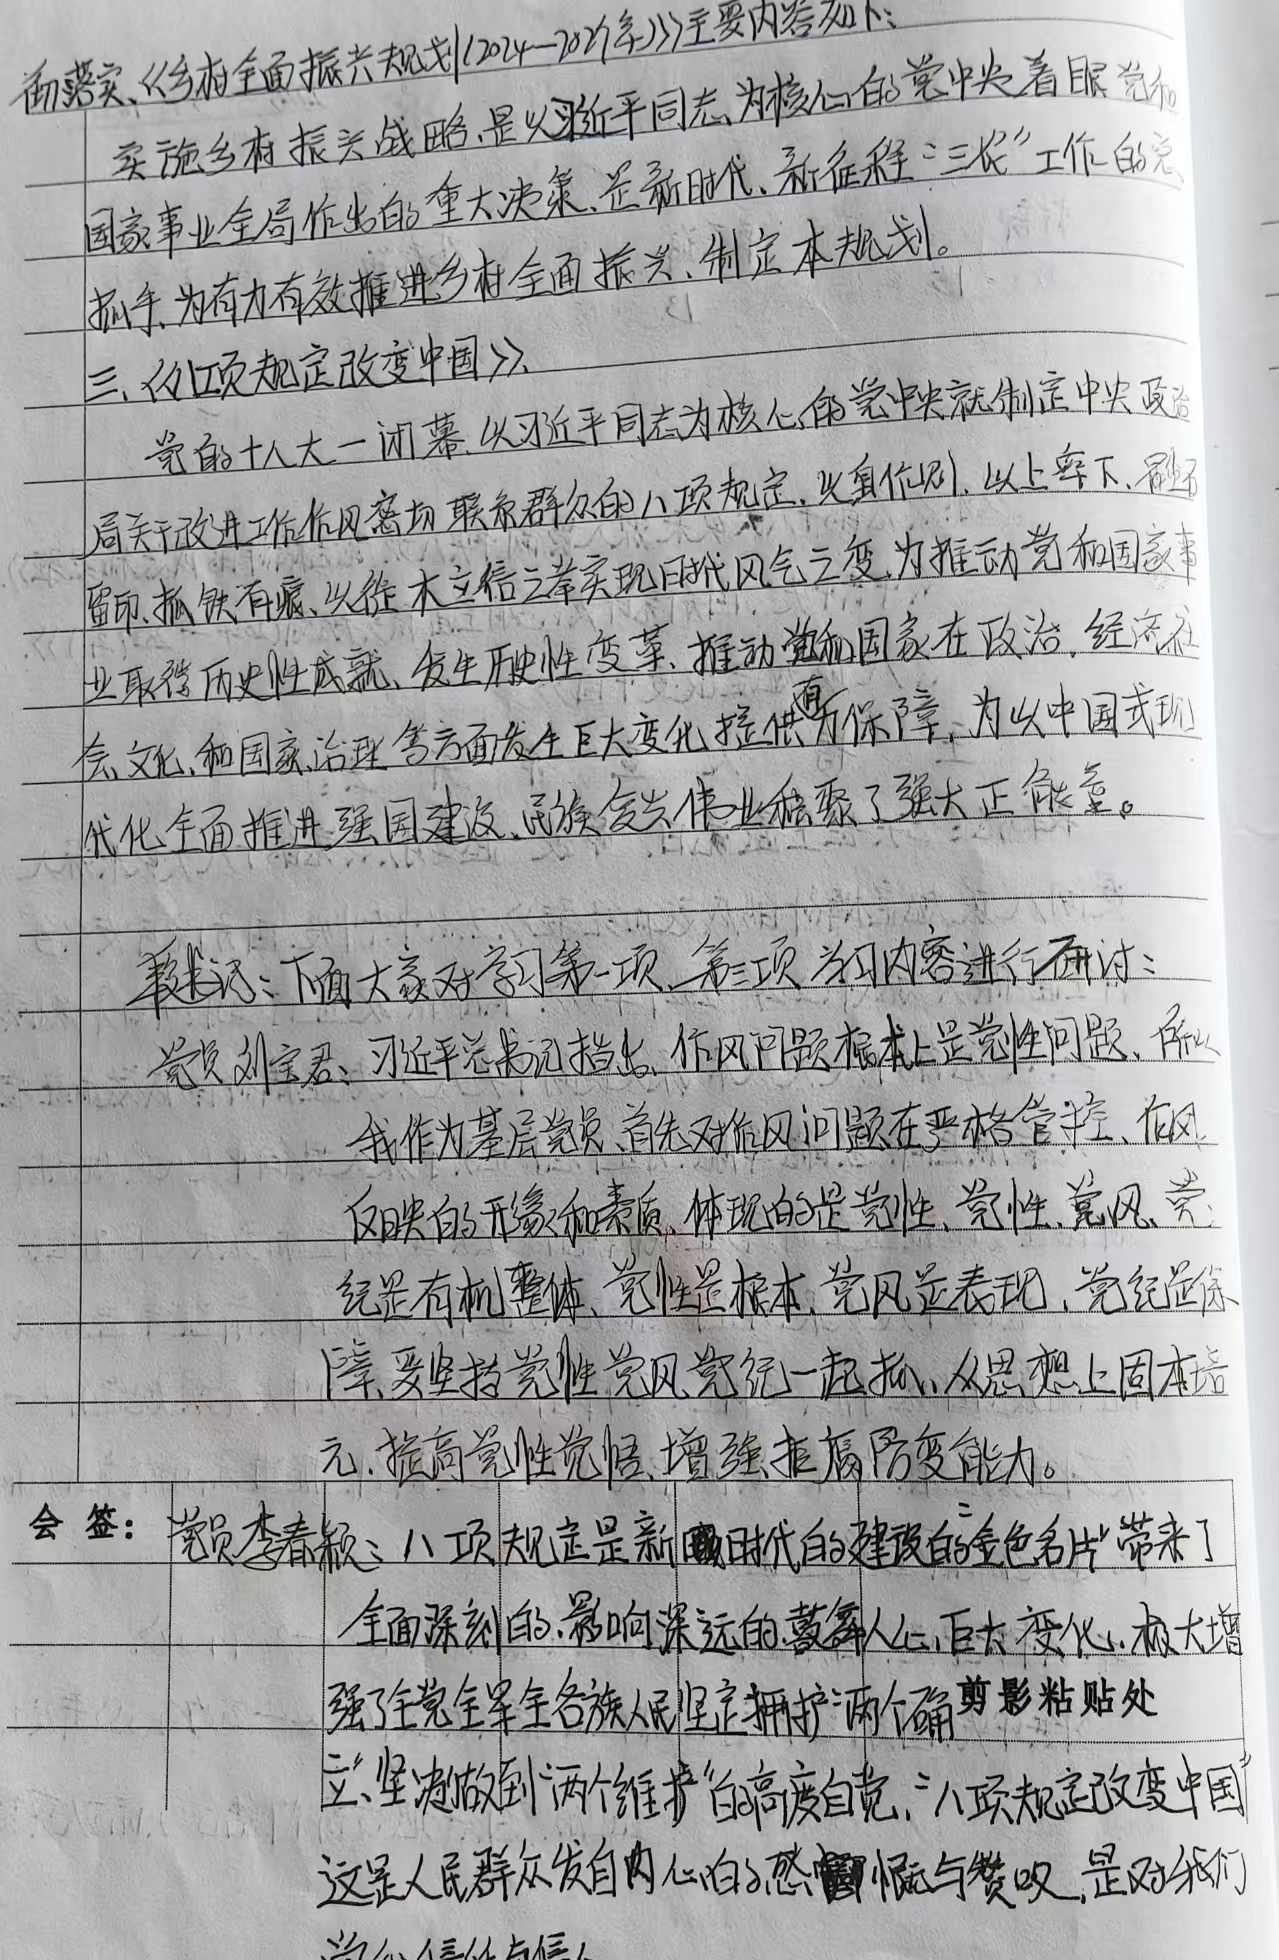 落实《乡村全面振兴规划(2024—2027年)》主要内容如下:
实施乡村振兴战略、是以习近平同志、为核心的党中央着眼党和
国家事业全局作出的重大决策、是新时代、新征程“三农”工作的总
抓手、为有力有效推进乡村全面振兴、制定本规划。
三、《八项规定改变中国》
党的十八大一闭幕、以习近平同志为核心的党中央就制定中央政治
局关于改进工作作风密切联系群众的八项规定、以身作则、以上率下、踏石
留印、抓铁有痕、以徙木立信之举实现时代风气之变、为推动党和国家事
业取得历史性成就、发生历史性变革、推动党和国家在政治、经济、社
会、文化、和国家治理等方面发生巨大变化提供有力保障,为以中国式现
代化全面推进强国建设、民族复兴伟业积聚了强大正能量。
书记:下面大家对学习第一项、第三项学习内容进行研讨:
党员刘宝君:习近平总书记指出、作风问题根本上是党性问题、所以
我作为基层党员、首先对作风问题在严格管控、作风
反映的形象和素质、体现的是党性、党性、党风、党
纪是有机整体、党性是根本、党风是表现、党纪是保
障、要坚持党性党风党纪一起抓、从思想上固本培
元、提高党性觉悟、增强拒腐防变能力。
会签:
党员李春颖:八项规定是新时代的建设的“金色名片”带来了
全面深刻的、影响深远的、鼓舞人心、巨大变化、极大增
强了全党全军全各族人民坚定拥护“两个确
剪影粘贴处
立”、坚决做到“两个维护”的高度自觉、“八项规定改变中国”
这是人民群众发自内心的感慨与赞叹、是对我们